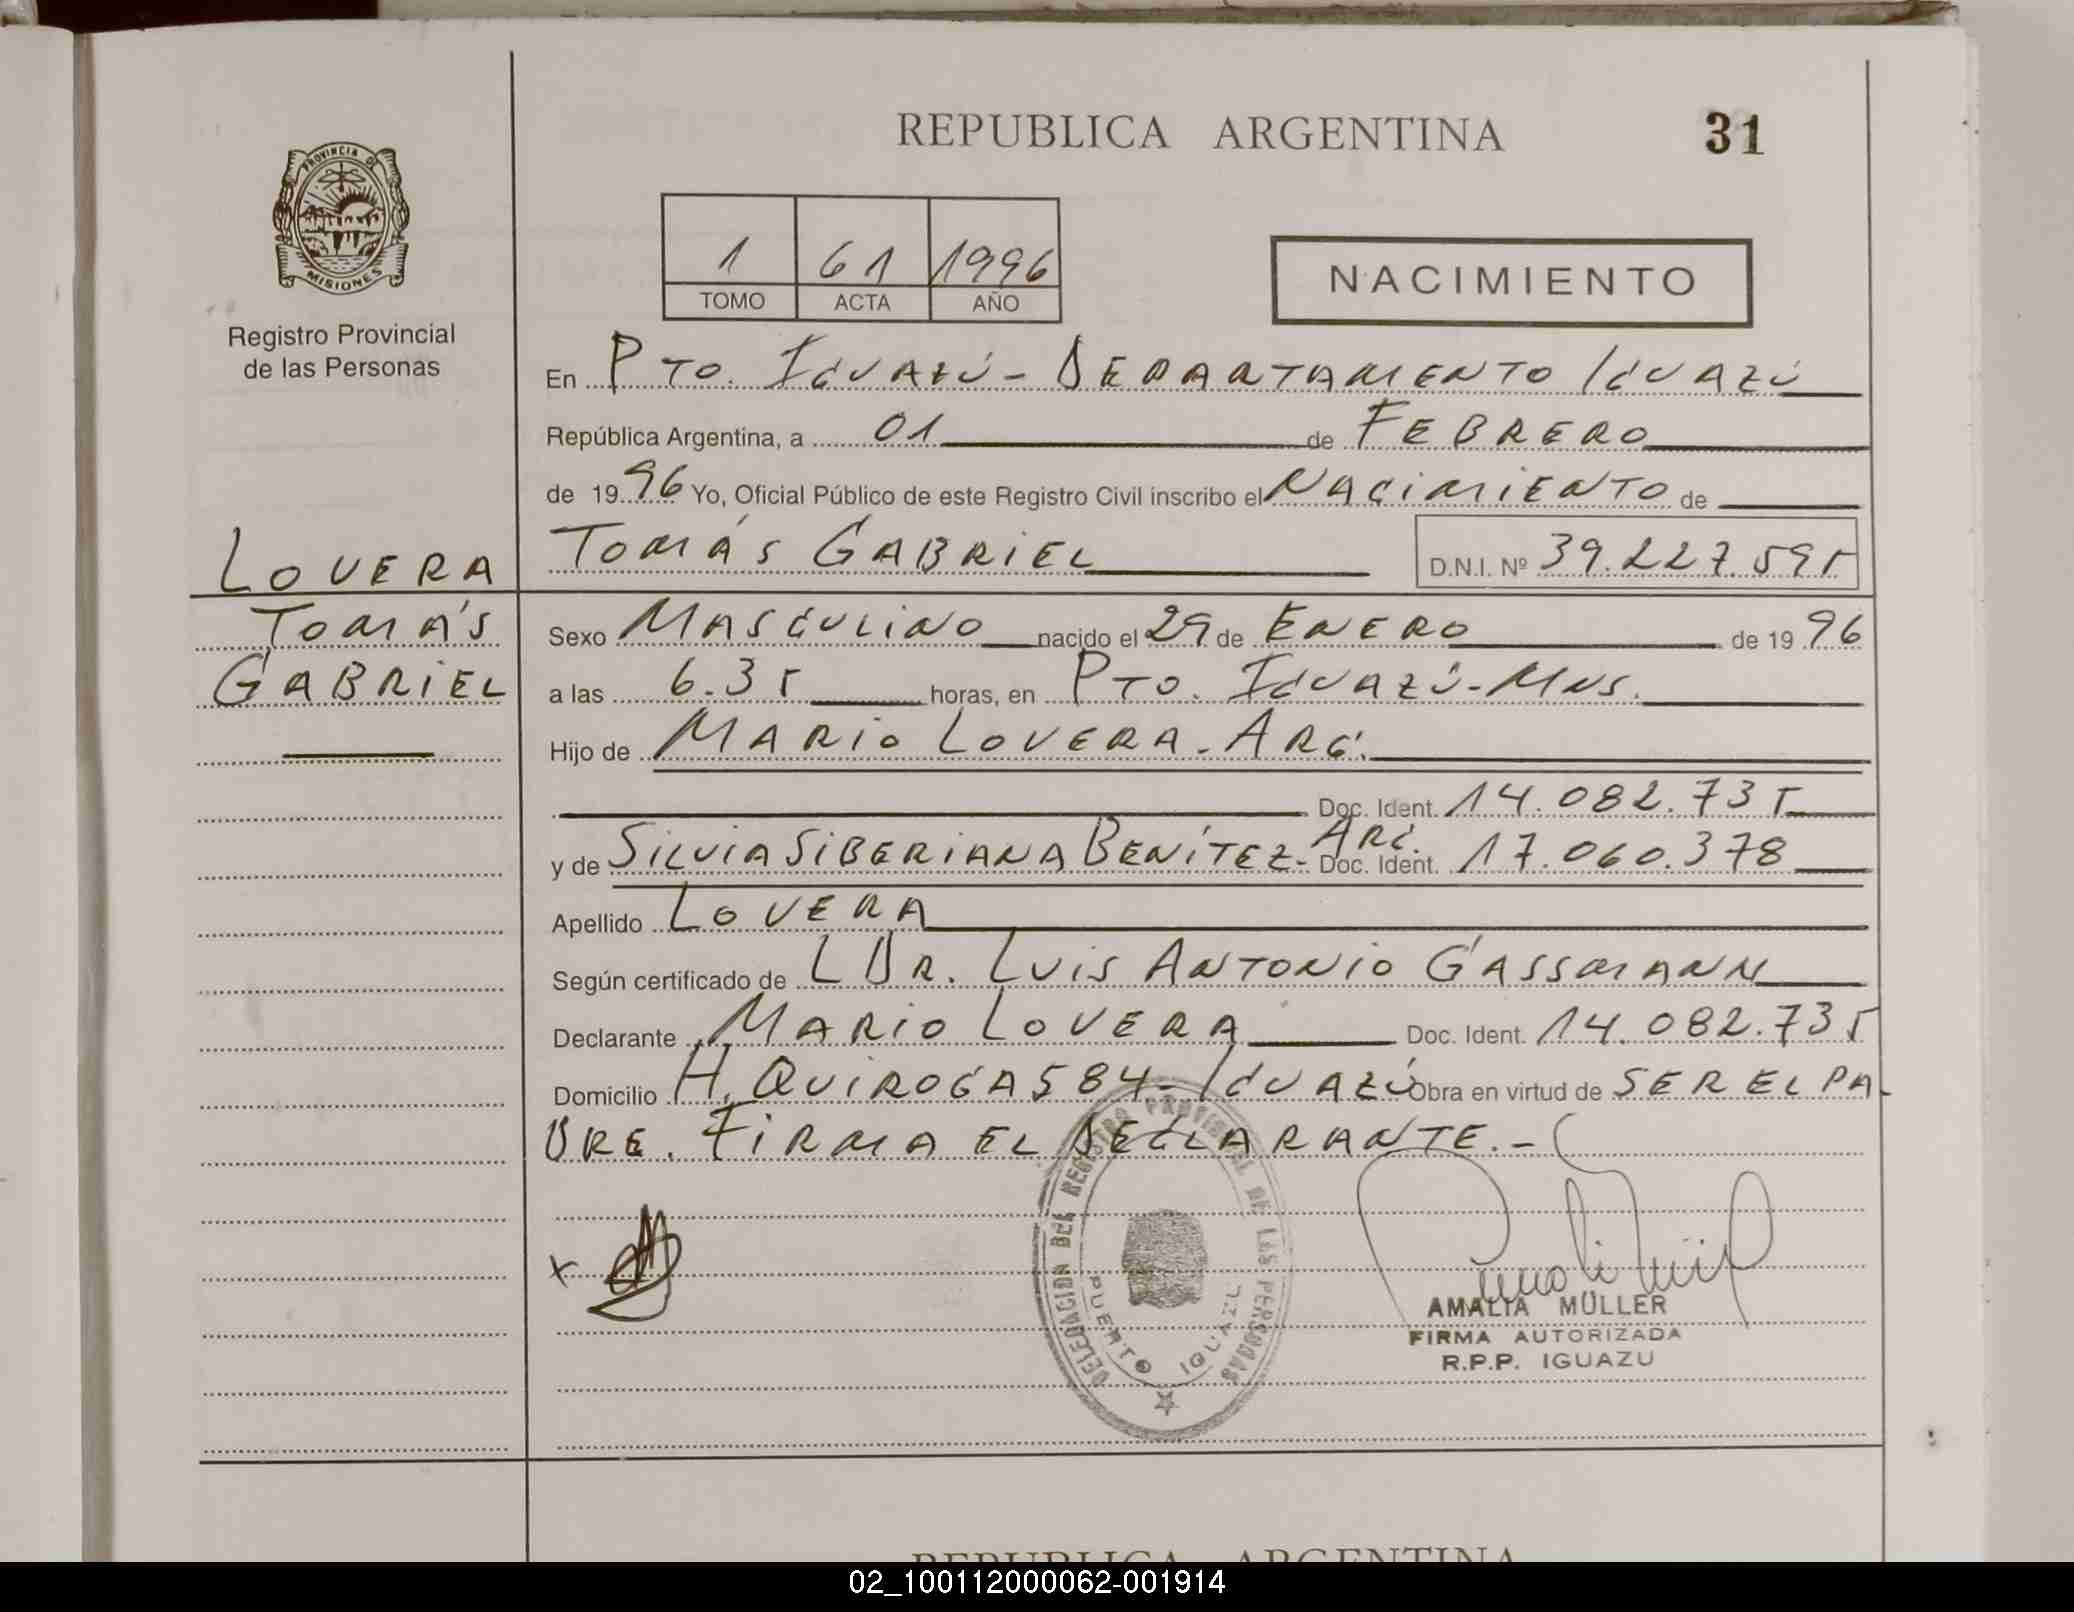 REPUBLICA ARGENTINA 31
PROVINCIA DE
MISIONES
Registro Provincial
de las Personas
1 61 1996
TOMO ACTA AÑO
NACIMIENTO
En PTO. IGUAZÚ - DEPARTAMENTO IGUAZÚ
República Argentina, a 01 de FEBRERO
de 1996 Yo, Oficial Público de este Registro Civil inscribo el NACIMIENTO de
TOMÁS GABRIEL D.N.I. Nº 39.227.595
LOVERA
TOMÁS
GABRIEL
Sexo MASCULINO nacido el 29 de ENERO de 1996
a las 6.35 horas, en PTO. IGUAZÚ - MNS.
Hijo de MARIO LOVERA - ARG.
Doc. Ident. 14.082.735
y de SILVIA SIBERIANA BENÍTEZ - ARG. Doc. Ident. 17.060.378
Apellido LOVERA
Según certificado de DR. LUIS ANTONIO GASSMANN
Declarante MARIO LOVERA Doc. Ident. 14.082.735
Domicilio H. QUIROGA 584 - IGUAZÚ Obra en virtud de SER EL PA-
DRE. FIRMA EL DECLARANTE. -
x
DELEGACION DEL REGISTRO PROVINCIAL DE LAS PERSONAS
PUERTO IGUAZU
AMALIA MULLER
FIRMA AUTORIZADA
R.P.P. IGUAZU
REPUBLICA ARGENTINA
02_100112000062-001914